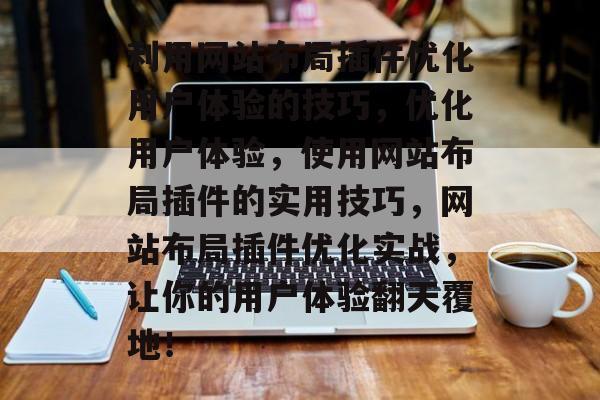 利用网站布局插件优化
用户体验的技巧，优化
用户体验，使用网站布
局插件的实用技巧，网
站布局插件优化实战，
让你的用户体验翻天覆
地！